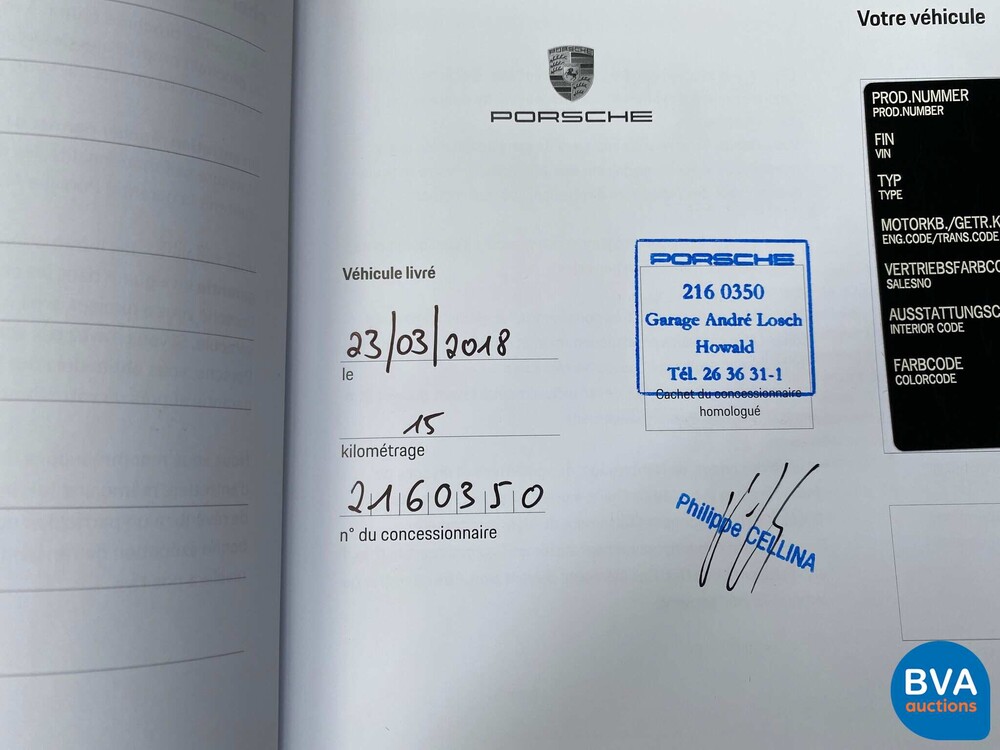 Votre véhicule
PORSCHE
PORSCHE
PROD.NUMMER
PROD.NUMBER
FIN
VIN
TYP
TYPE
MOTORKB./GETR.K
ENG.CODE/TRANS.CODE
VERTRIEBSFARBCO
SALESNO
AUSSTATTUNGSC
INTERIOR CODE
FARBCODE
COLORCODE
Véhicule livré
23/03/2018
le
15
kilométrage
2160350
n° du concessionnaire
PORSCHE
216 0350
Garage André Losch
Howald
Tél. 26 36 31-1
Cachet du concessionnaire
homologué
Philippe CELLINA
BVA
auctions